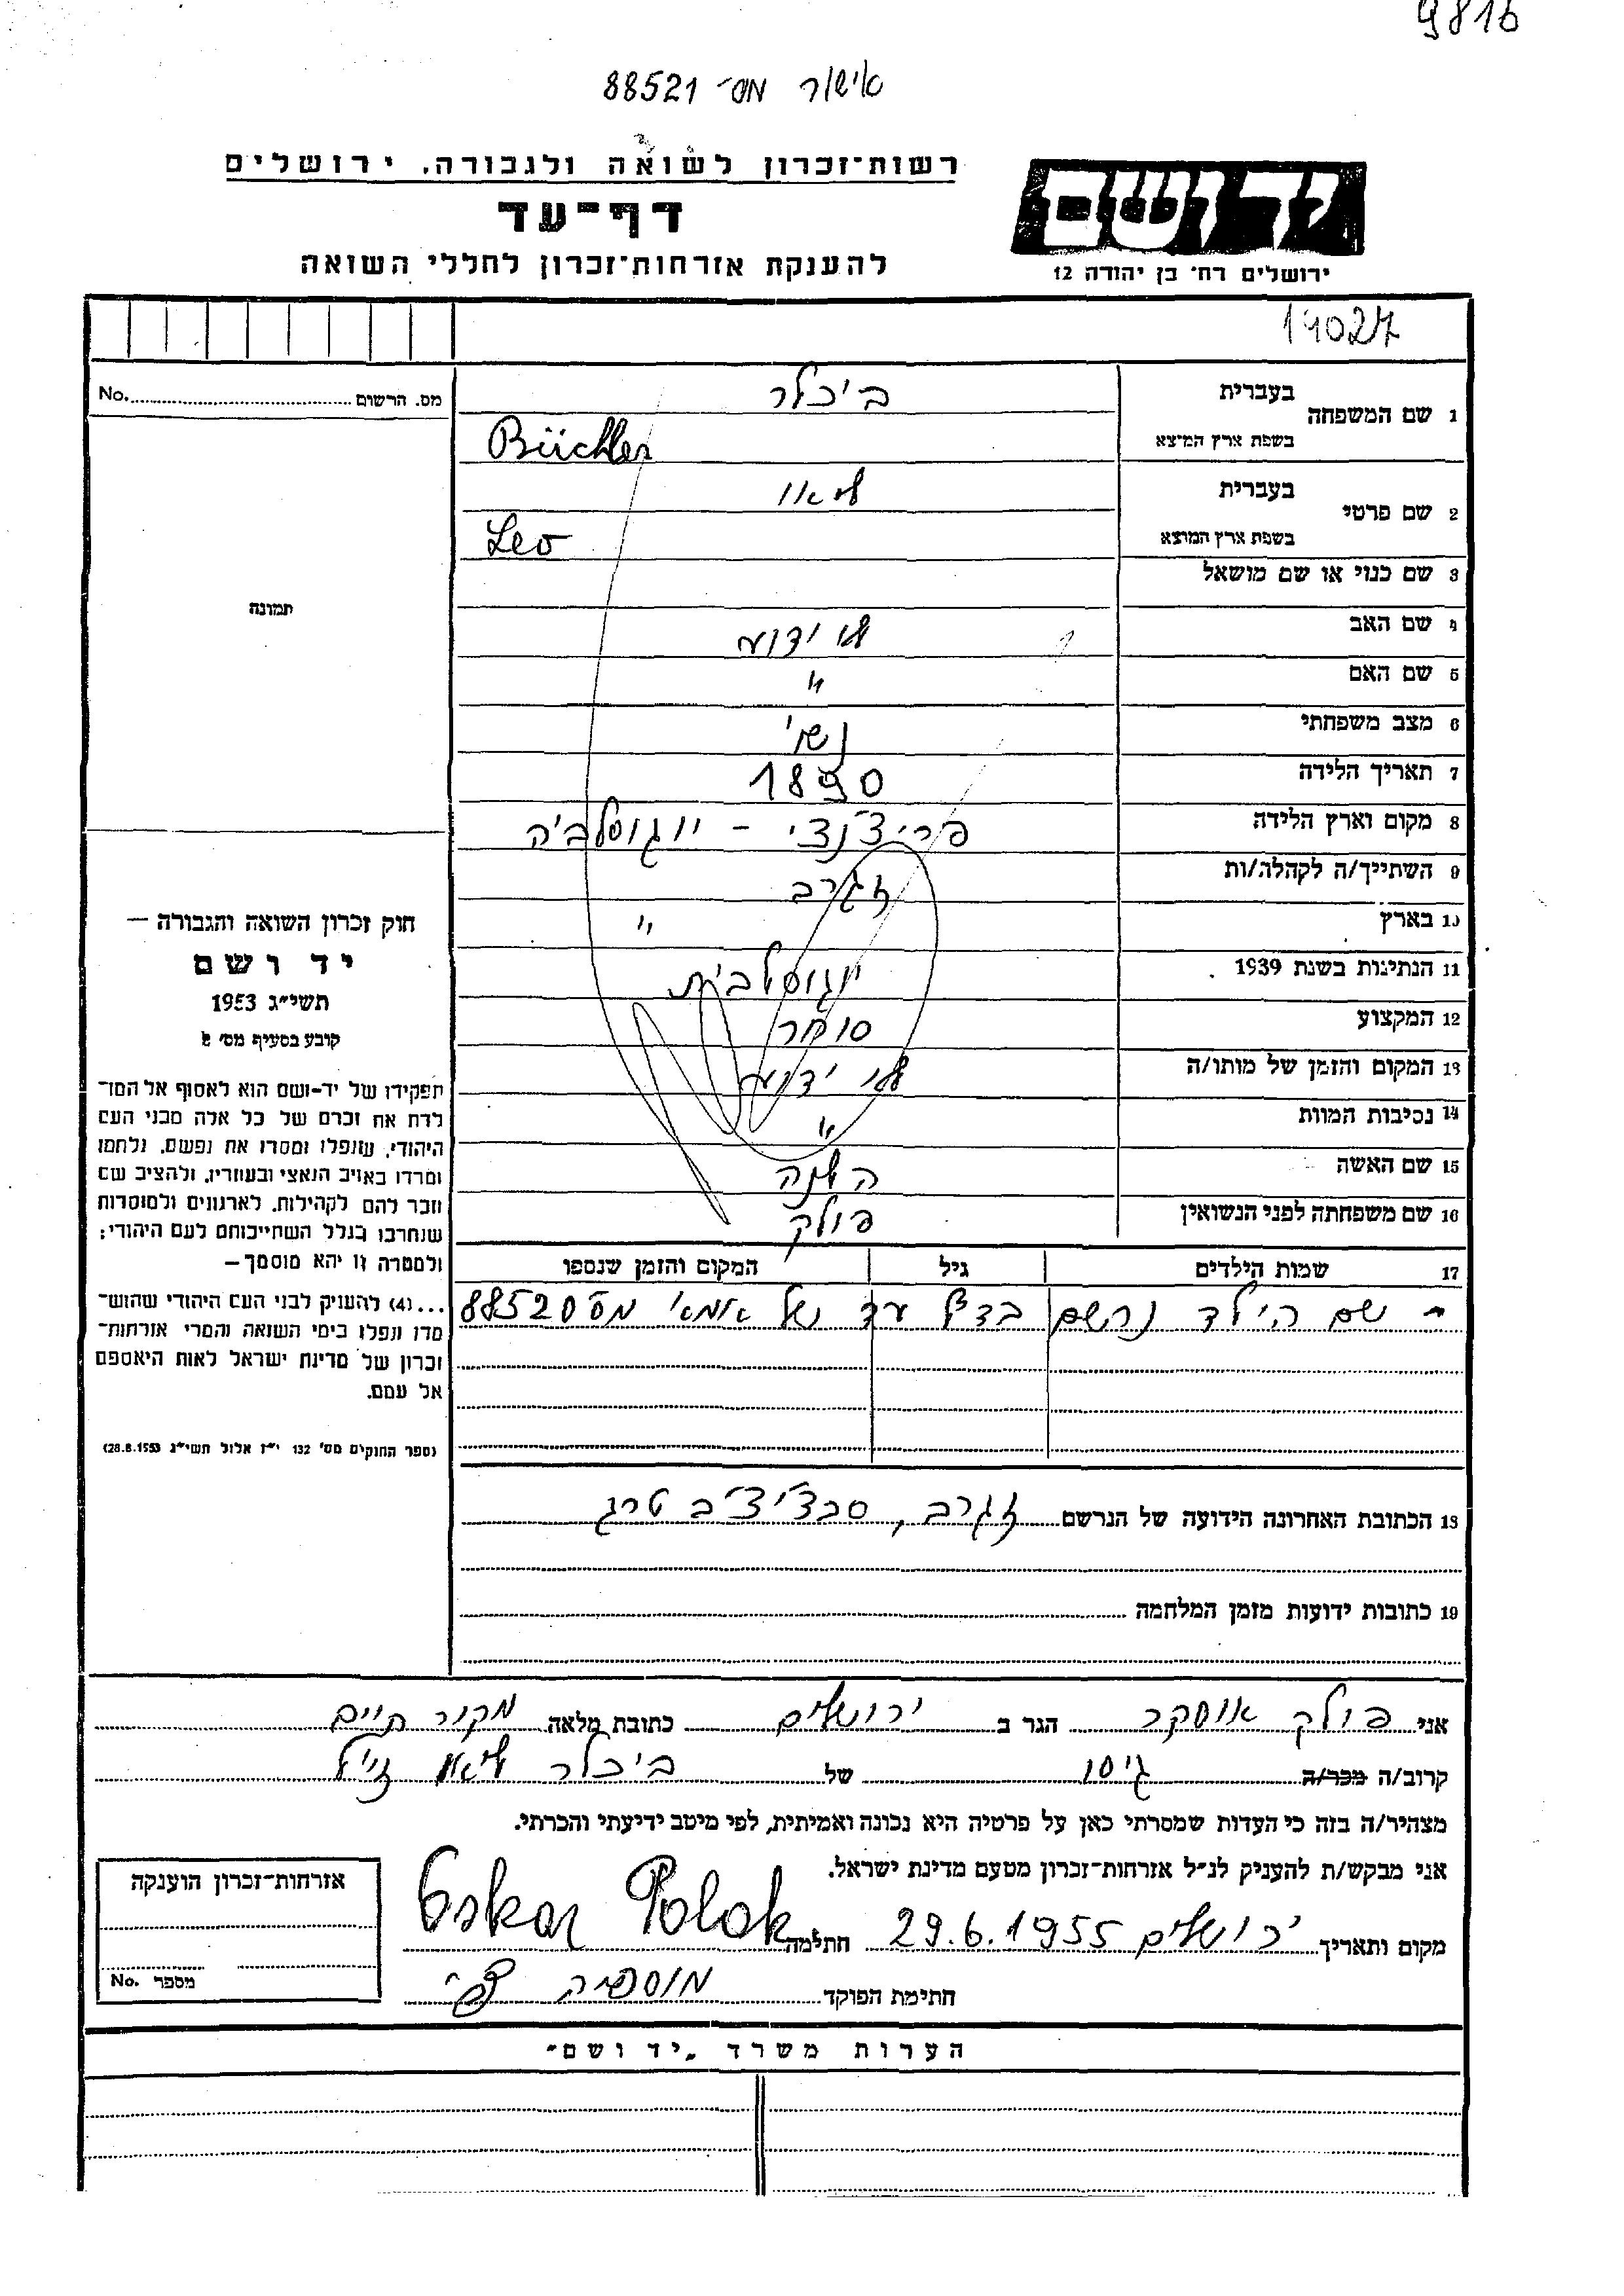 9816
אישור מס׳ 88521
רשות־זכרון לשואה ולגבורה, ירושלים
דף־עד
להענקת אזרחות־זכרון לחללי השואה
יד ושם
ירושלים רח׳ בן יהודה 12
14027
מס. הרשום No.
1 שם המשפחה
בעברית ביכלר
בשפת ארץ המוצא Büchler
2 שם פרטי
בעברית ליאו
בשפת ארץ המוצא Leo
3 שם כנוי או שם מושאל
4 שם האב לא ידוע
5 שם האם "
6 מצב משפחתי נשוי
7 תאריך הלידה 1890
8 מקום וארץ הלידה פריצ׳נצי - יוגוסלביה
9 השתייך/ה לקהלה/ות זגרב
10 בארץ "
11 הנתינות בשנת 1939 יוגוסלבית
12 המקצוע סוחר
13 המקום והזמן של מותו/ה לא ידוע
14 נסיבות המוות "
15 שם האשה
16 שם משפחתה לפני הנשואין פולק
17 שמות הילדים גיל המקום והזמן שנספו
- שם הילד נרשם בדף עד של אמא׳ מס 88520
18 הכתובת האחרונה הידועה של הנרשם זגרב,
19 כתובות ידועות מזמן המלחמה
תמונה
חוק זכרון השואה והגבורה —
יד ושם
תשי״ג 1953
קובע בסעיף מס׳ 2
תפקידו של יד-ושם הוא לאסוף אל המו־
לדת את זכרם של כל אלה מבני העם
היהודי, שנפלו ומסרו את נפשם, נלחמו
ומרדו באויב הנאצי ובעוזריו, ולהציב שם
וזכר להם לקהילות, לארגונים ולמוסדות
שנחרבו בגלל השתייכותם לעם היהודי;
ולמטרה זו יהא מוסמך —
...(4) להעניק לבני העם היהודי שהוש־
מדו ונפלו בימי השואה והמרי אזרחות־
זכרון של מדינת ישראל לאות היאספם
אל עמם.
(ספר החוקים מס׳ 132 י״ז אלול תשי״ג 28.8.1953)
אני פולק אוסקר הגר ב ירושלים כתובת מלאה מקור חיים
קרוב/ה מכר/ה גיסו של ביכלר ליאו ז״ל
מצהיר/ה בזה כי העדות שמסרתי כאן על פרטיה היא נכונה ואמיתית, לפי מיטב ידיעתי והכרתי.
אני מבקש/ת להעניק לנ״ל אזרחות־זכרון מטעם מדינת ישראל.
מקום ותאריך ירושלים 29.6.1955 חתימה Oskar Polak
חתימת הפוקד
אזרחות־זכרון הוענקה
מספר No.
הערות משרד „יד ושם"